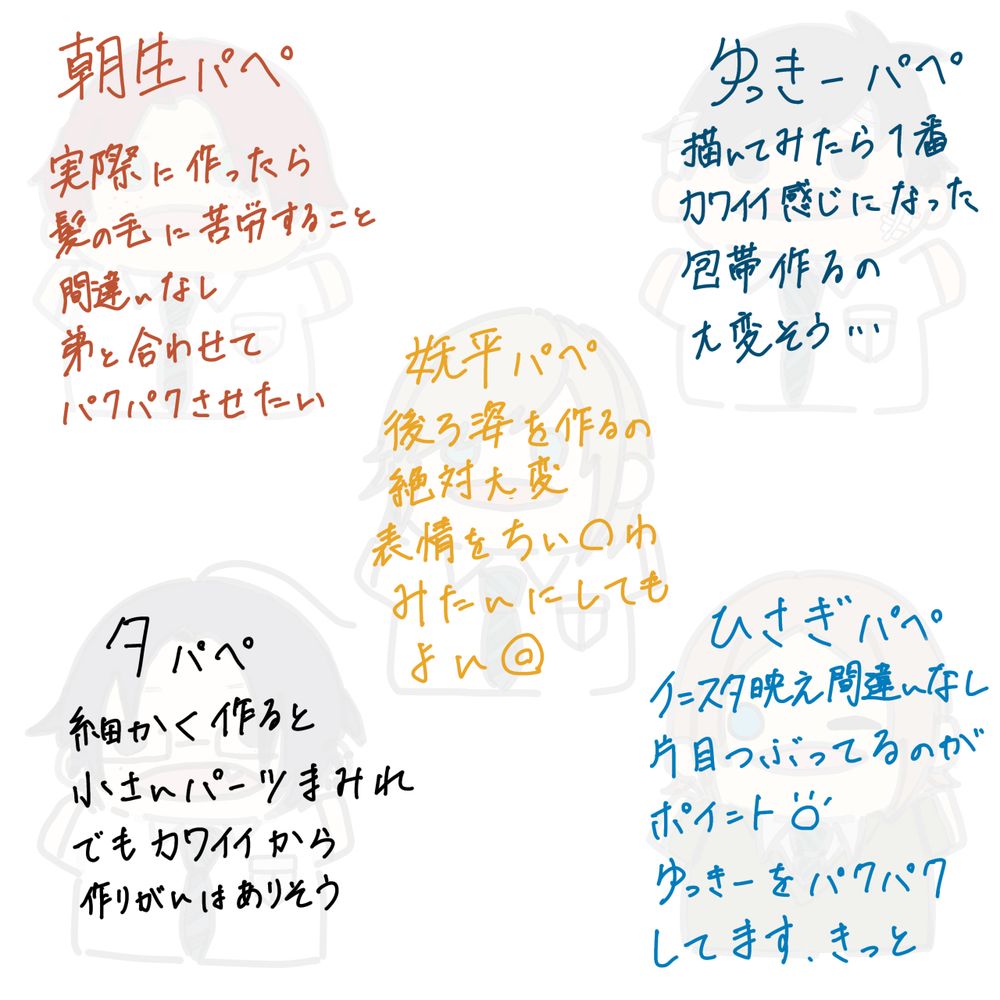 朝生パペ
実際に作ったら
髪の毛に苦労すること
間違いなし
弟と合わせて
パクパクさせたい
ゆっきーパペ
描いてみたら1番
カワイイ感じになった
包帯作るの
大変そう…
妩平パペ
後ろ姿を作るの
絶対大変
表情をちい〇わ
みたいにしても
よい◎
夕パペ
細かく作ると
小さいパーツまみれ
でもカワイイから
作りがいはありそう
ひさぎパペ
インスタ映え間違いなし
片目つぶってるのが
ポイント
ゆっきーをパクパク
してます、きっと